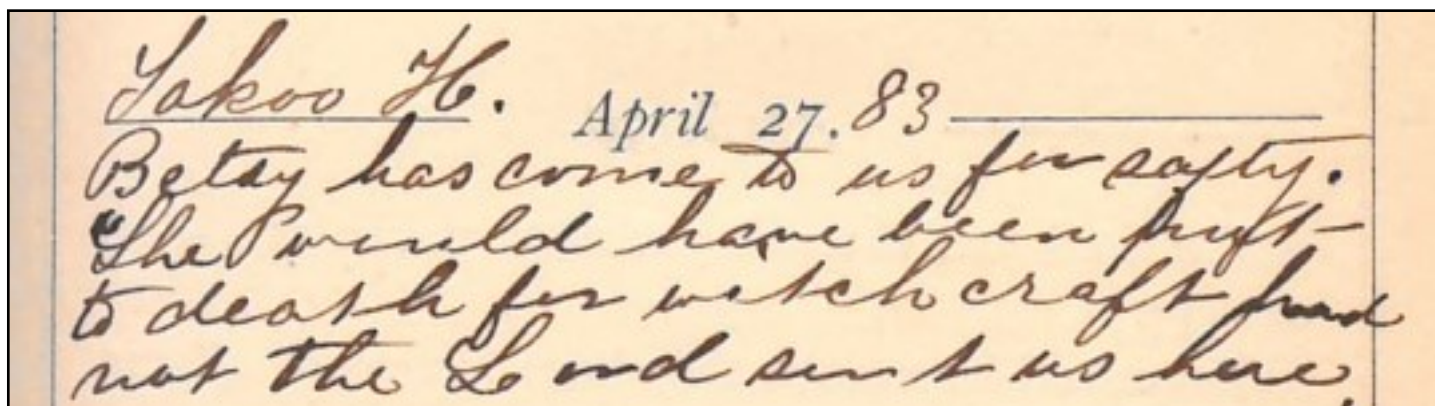 Yakoo H. April 27. 83
Betsy has come to us for safty.
She would have been put
to death for witchcraft had
not the Lord sent us here.